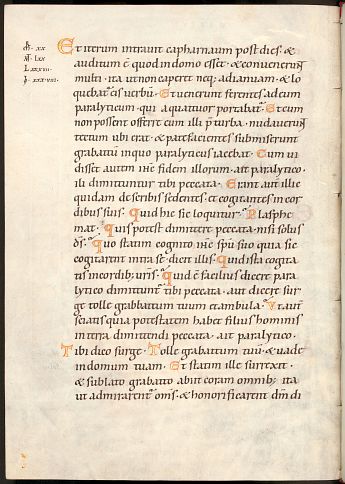 m̄. xx
m̄. Lxx
Lxxviii.
j. xxxviii.
Et iterum intravit capharnaum post dies. &
auditum ē quod in domo esset. & convenerunt
multi. ita ut non caperet neq; ad ianuam. & lo
quebat' eis verbū. Et venerunt ferentes ad eum
paralyticum. qui a quattuor portabat'. Et cum
non possent offerre eum illi p̄ turba. nudaverunt
tectum ubi erat. & patefacientes submiserunt
grabattū in quo paralyticus iacebat. Cum vi
disset autem ihc̄ fidem illorum. ait paralytico.
fili dimittuntur tibi peccata. Erant aut̄ illic
quidam de scribis sedentes. et cogitantes in cor
dibus suis. Quid hic sic loquitur. Blasphe
mat. Quis potest dimittere peccata nisi solus
d̄s. Quo statim cognito ihc̄ sp̄u suo quia sic
cogitarent intra se. dicit illis. Quid ista cogita
tis in cordib; vr̄is. Quid ē facilius dicere para
lytico dimittunt' tibi peccata. aut dicere sur
ge tolle grabbattum tuum et ambula. Ut aut̄
sciatis quia potestatem habet filius hominis
in terra dimittendi peccata. ait paralytico.
Tibi dico surge. Tolle grabattum tuū. & vade
in domum tuam. Et statim ille surrexit.
& sublato grabatto abiit coram omnib; ita
ut admirarent' om̄s. & honorificarent dm̄ di